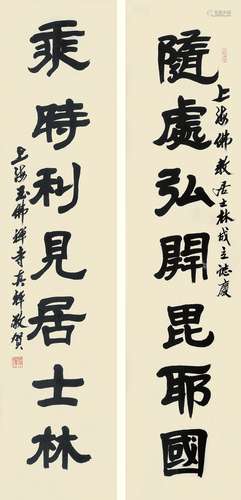 隨處弘開毘耶國
上海佛教居士林成立誌慶
乘時利見居士林
上海玉佛禪寺真禪敬賀